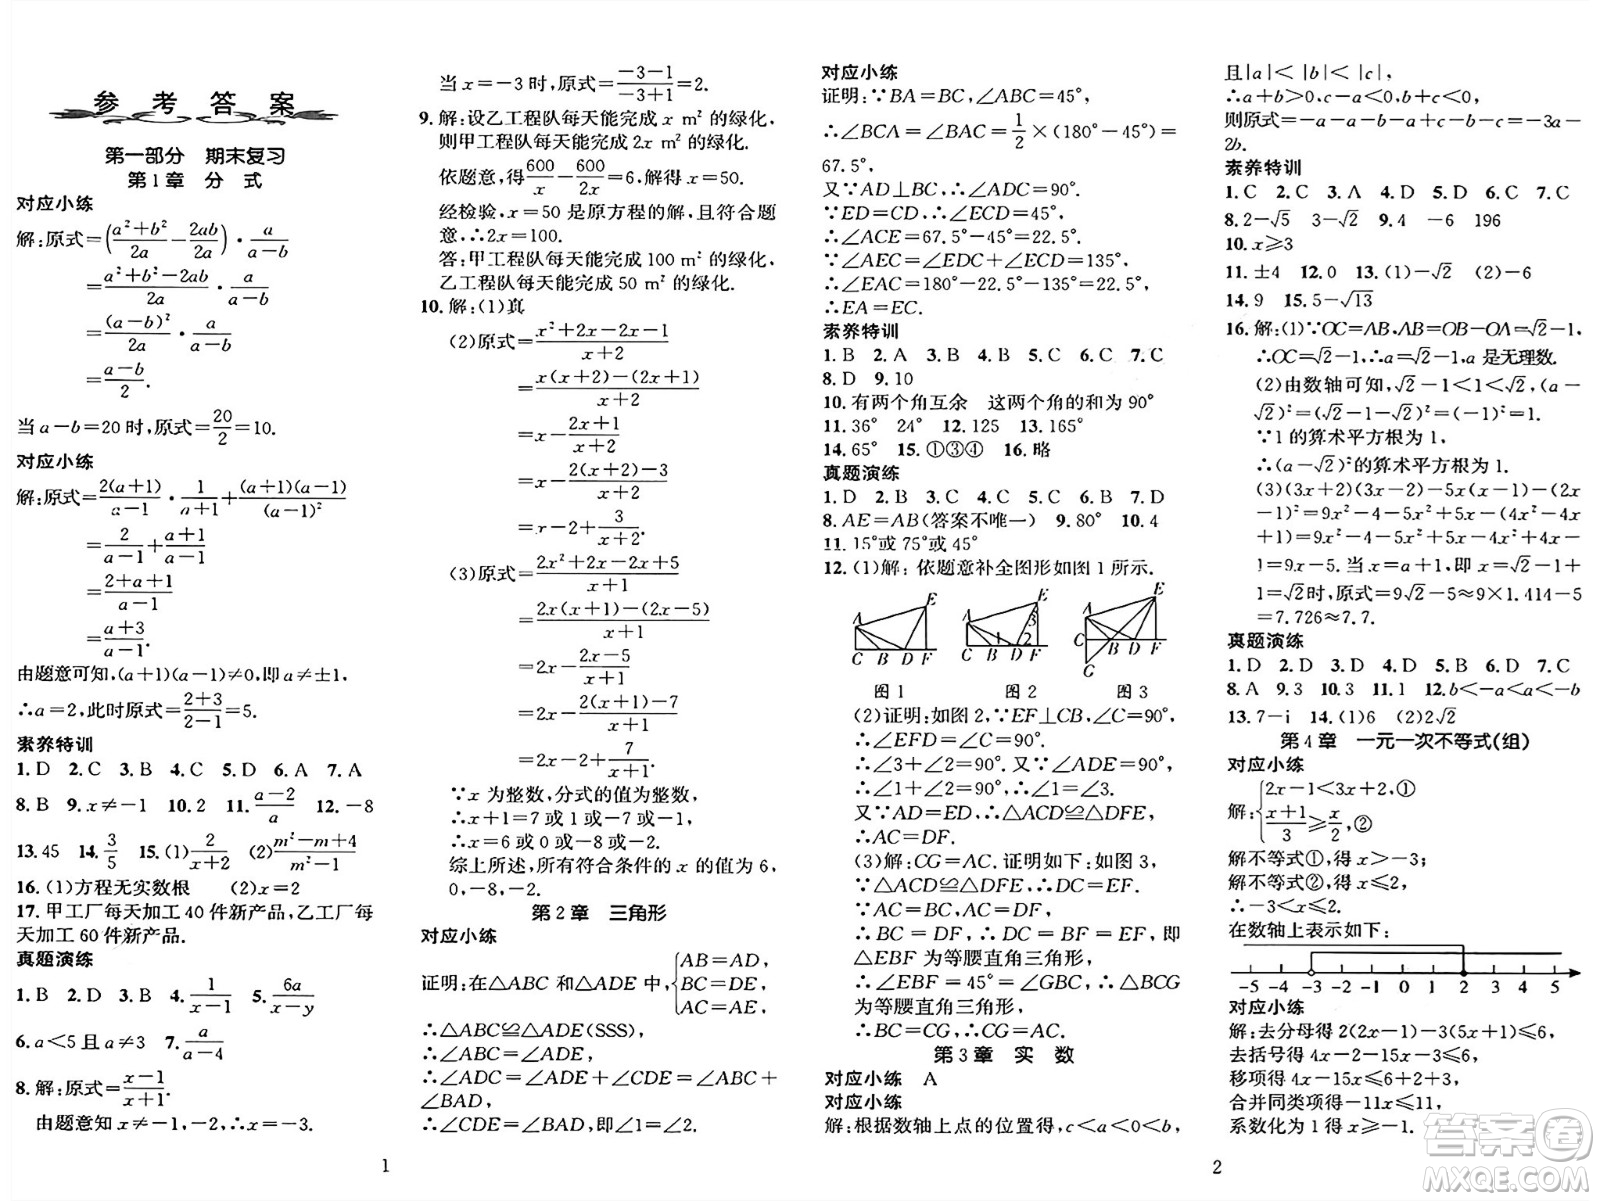 参考答案
第一部分 期末复习
第1章 分 式
对应小练
解:原式=(\frac{a²+b²}{2a}-\frac{2ab}{2a})·\frac{a}{a-b}
=\frac{a²+b²-2ab}{2a}·\frac{a}{a-b}
=\frac{(a-b)²}{2a}·\frac{a}{a-b}
=\frac{a-b}{2}.
当 a-b=20 时,原式=\frac{20}{2}=10.
对应小练
解:原式=\frac{2(a+1)}{a-1}·\frac{1}{a+1}+\frac{(a+1)(a-1)}{(a-1)²}
=\frac{2}{a-1}+\frac{a+1}{a-1}
=\frac{2+a+1}{a-1}
=\frac{a+3}{a-1}.
由题意可知,(a+1)(a-1)≠0,即 a≠±1,
∴a=2,此时原式=\frac{2+3}{2-1}=5.
素养特训
1. D 2. C 3. B 4. C 5. D 6. A 7. A
8. B 9. x≠-1 10. 2 11. \frac{a-2}{a} 12. -8
13. 45 14. \frac{3}{5} 15. (1)\frac{2}{x+2} (2)\frac{m²-m+4}{m²-1}
16. (1)方程无实数根 (2)x=2
17. 甲工厂每天加工 40 件新产品,乙工厂每
天加工 60 件新产品.
真题演练
1. B 2. D 3. B 4. \frac{1}{x-1} 5. \frac{6a}{x-y}
6. a<5 且 a≠3 7. \frac{a}{a-4}
8. 解:原式=\frac{x-1}{x+1}.
由题意知 x≠-1,-2,∴x=-3.
当 x=-3 时,原式=\frac{-3-1}{-3+1}=2.
9. 解:设乙工程队每天能完成 x m² 的绿化,
则甲工程队每天能完成 2x m² 的绿化.
依题意,得\frac{600}{x}-\frac{600}{2x}=6,解得 x=50.
经检验,x=50 是原方程的解,且符合题
意,∴2x=100.
答:甲工程队每天能完成 100 m² 的绿化,
乙工程队每天能完成 50 m² 的绿化.
10. 解:(1)真
(2)原式=\frac{x²+2x-2x-1}{x+2}
=\frac{x(x+2)-(2x+1)}{x+2}
=x-\frac{2x+1}{x+2}
=x-\frac{2(x+2)-3}{x+2}
=x-2+\frac{3}{x+2}.
(3)原式=\frac{2x²+2x-2x+5}{x+1}
=\frac{2x(x+1)-(2x-5)}{x+1}
=2x-\frac{2x-5}{x+1}
=2x-\frac{2(x+1)-7}{x+1}
=2x-2+\frac{7}{x+1}.
∵x 为整数,分式的值为整数,
∴x+1=7 或 1 或-7 或-1.
∴x=6 或 0 或-8 或-2.
综上所述,所有符合条件的 x 的值为 6,
0,-8,-2.
第2章 三角形
对应小练
证明:在△ABC 和△ADE 中,{AB=AD, BC=DE, AC=AE,
∴△ABC≌△ADE(SSS),
∴∠ABC=∠ADE.
∴∠ADC=∠ADE+∠CDE=∠ABC+
∠BAD,
∴∠CDE=∠BAD,即∠1=∠2.
1
对应小练
证明:∵BA=BC,∠ABC=45°,
∴∠BCA=∠BAC=\frac{1}{2}×(180°-45°)=
67.5°.
又∵AD⊥BC,∴∠ADC=90°.
∵ED=CD,∴∠ECD=45°,
∴∠ACE=67.5°-45°=22.5°.
∴∠AEC=∠EDC+∠ECD=135°,
∴∠EAC=180°-22.5°-135°=22.5°,
∴EA=EC.
素养特训
1. B 2. A 3. B 4. B 5. B 6. C 7. C
8. D 9. 10
10. 有两个角互余 这两个角的和为 90°
11. 36° 24° 12. 125 13. 165°
14. 65° 15. ①③④ 16. 略
真题演练
1. D 2. B 3. D 4. C 5. C 6. B 7. D
8. AE=AB(答案不唯一) 9. 80° 10. 4
11. 15°或 75°或 45°
12. (1)解:依题意补全图形如图 1 所示.
A E C B D F
A E 3 1 2 C B D F
A E C B D F G
图 1 图 2 图 3
(2)证明:如图 2,∵EF⊥CB,∠C=90°,
∴∠EFD=∠C=90°.
∴∠3+∠2=90°. 又∵∠ADE=90°,
∴∠1+∠2=90°,∴∠1=∠3.
又∵AD=ED,∴△ACD≌△DFE,
∴AC=DF.
(3)解:CG=AC. 证明如下:如图 3,
∵△ACD≌△DFE,∴DC=EF.
∵AC=BC,AC=DF,
∴BC=DF,∴DC=BF=EF,即
△EBF 为等腰直角三角形,
∴∠EBF=45°=∠GBC,∴△GBC
为等腰直角三角形,
∴BC=CG,∴CG=AC.
第3章 实 数
对应小练 A
对应小练
解:根据数轴上点的位置得,c<a<0<b,
且|a|<|b|<|c|,
∴a+b>0,c-a<0,b+c<0,
则原式=-a-a-b-c+a+c-b=-3a-
2b.
素养特训
1. C 2. C 3. A 4. D 5. D 6. C 7. C
8. 2-√5 3-√2 9. 4 -6 196
10. x≥3
11. ±4 12. 0 13. (1)-√2 (2)-6
14. 9 15. 5-√13
16. 解:(1)∵OC=AB,AB=OB-OA=√2-1,
∴OC=√2-1,∴a=√2-1,a 是无理数.
(2)由数轴可知,√2-1<1<√2,∴(a-
√2)²=(√2-1-√2)²=(-1)²=1.
∵1 的算术平方根为 1,
∴(a-√2)²的算术平方根为 1.
(3)(3x+2)(3x-2)-5x(x-1)-(2x-
1)²=9x²-4-5x²+5x-(4x²-4x
+1)=9x²-4-5x²+5x-4x²+4x-
1=9x-5. 当 x=a+1,即 x=√2-1+
1=√2时,原式=9√2-5≈9×1.414-5
=7.726≈7.7.
真题演练
1. D 2. D 3. D 4. C 5. D 6. D 7. C
8. A 9. 3 10. 3 11. 1 12. b<-a<a<-b
13. 7-i 14. (1)6 (2)2√2
第4章 一元一次不等式(组)
对应小练
解:{2x-1<3x+2,① \frac{x+1}{3}≥\frac{x}{2},②
解不等式①,得 x>-3;
解不等式②,得 x≤2.
∴-3<x≤2.
在数轴上表示如下:
-5 -4 -3 -2 -1 0 1 2 3 4 5
对应小练
解:去分母得 2(2x-1)-3(5x+1)≤6,
去括号得 4x-2-15x-3≤6,
移项得 4x-15x≤6+2+3,
合并同类项得-11x≤11,
系数化为 1 得 x≥-1.
2
答案圈
MXQE.COM